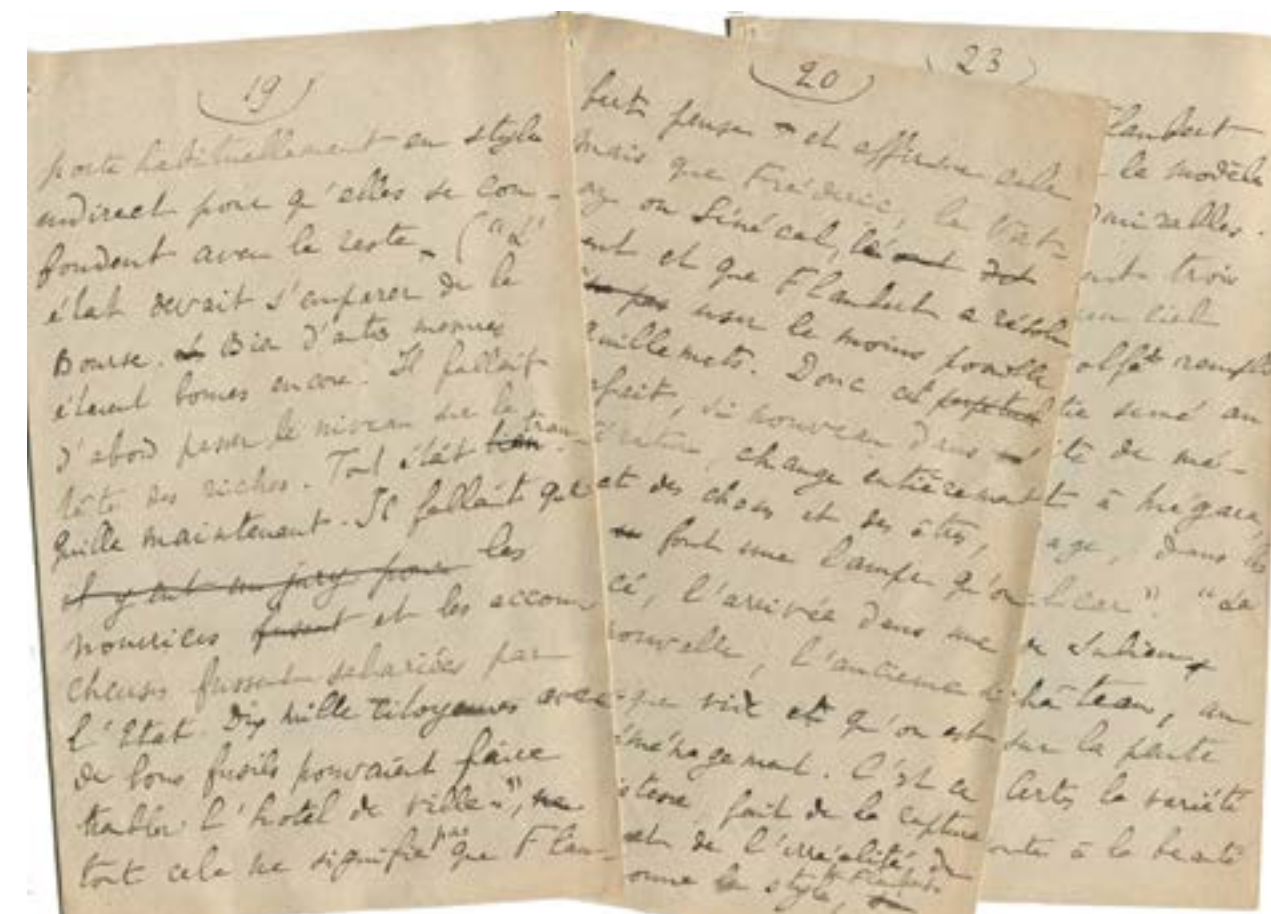 19
porte habituellement en style
indirect pour qu'elles se con-
fondent avec le reste. ("L'
état devait s'emparer de la
Bourse. Bien d'autres mesures
étaient bonnes encore. Il fallait
d'abord passer le niveau sur la
tête des riches. Tout était tran-
quille maintenant. Il fallait que
il y eut un jury pour les
nourrices fussent et les accou-
cheuses fussent salariées par
l'Etat. Dix mille citoyennes avec
de bons fusils pouvaient faire
trembler l'hotel de ville.",
tout cela ne signifie pas que Flau-
20
bert pense et affirme cela
mais que Frédéric, la Vat-
az ou Sénécal, le
ent et que Flaubert a résolu
user le moins possible
guillemets. Donc cet
rfait, si nouveau dans
érature, change entièrement
et des choses et des êtres,
font une lampe qu'on
cé, l'arrivée dans une
nouvelle, l'ancienne
que vide et qu'on est
éménagement. C'est ce
istesse, fait de la
et de l'irréalité de
onne le style,
23
Flaubert
le modèle
admirables.
ent trois
un ciel
olfe rempli
tie semé au
ite de mé-
t à Mégara,
age, dans les
lcar". "Le
de Julien
château, au
sur la pente
Certes la variété
oute à la beauté